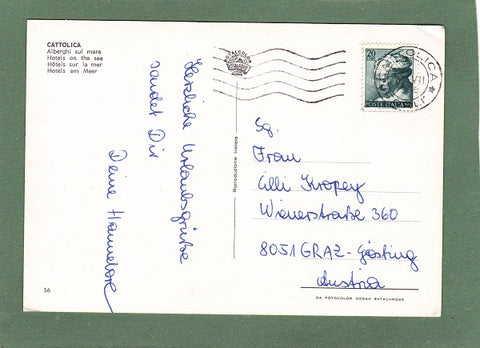 CATTOLICA
Alberghi sul mare
Hotels on the sea
Hôtels sur la mer
Hotels am Meer
Herzliche Urlaubsgrüße
sendet Dir
Deine Hannelore
Riproduzione Vietata
20
POSTE ITALIANE
CATTOLICA
Sg.
Frau
Cilli Kropey
Wienerstraße 360
8051 GRAZ-Gösting
Austria
56
DA FOTOCOLOR KODAK EKTACHROME